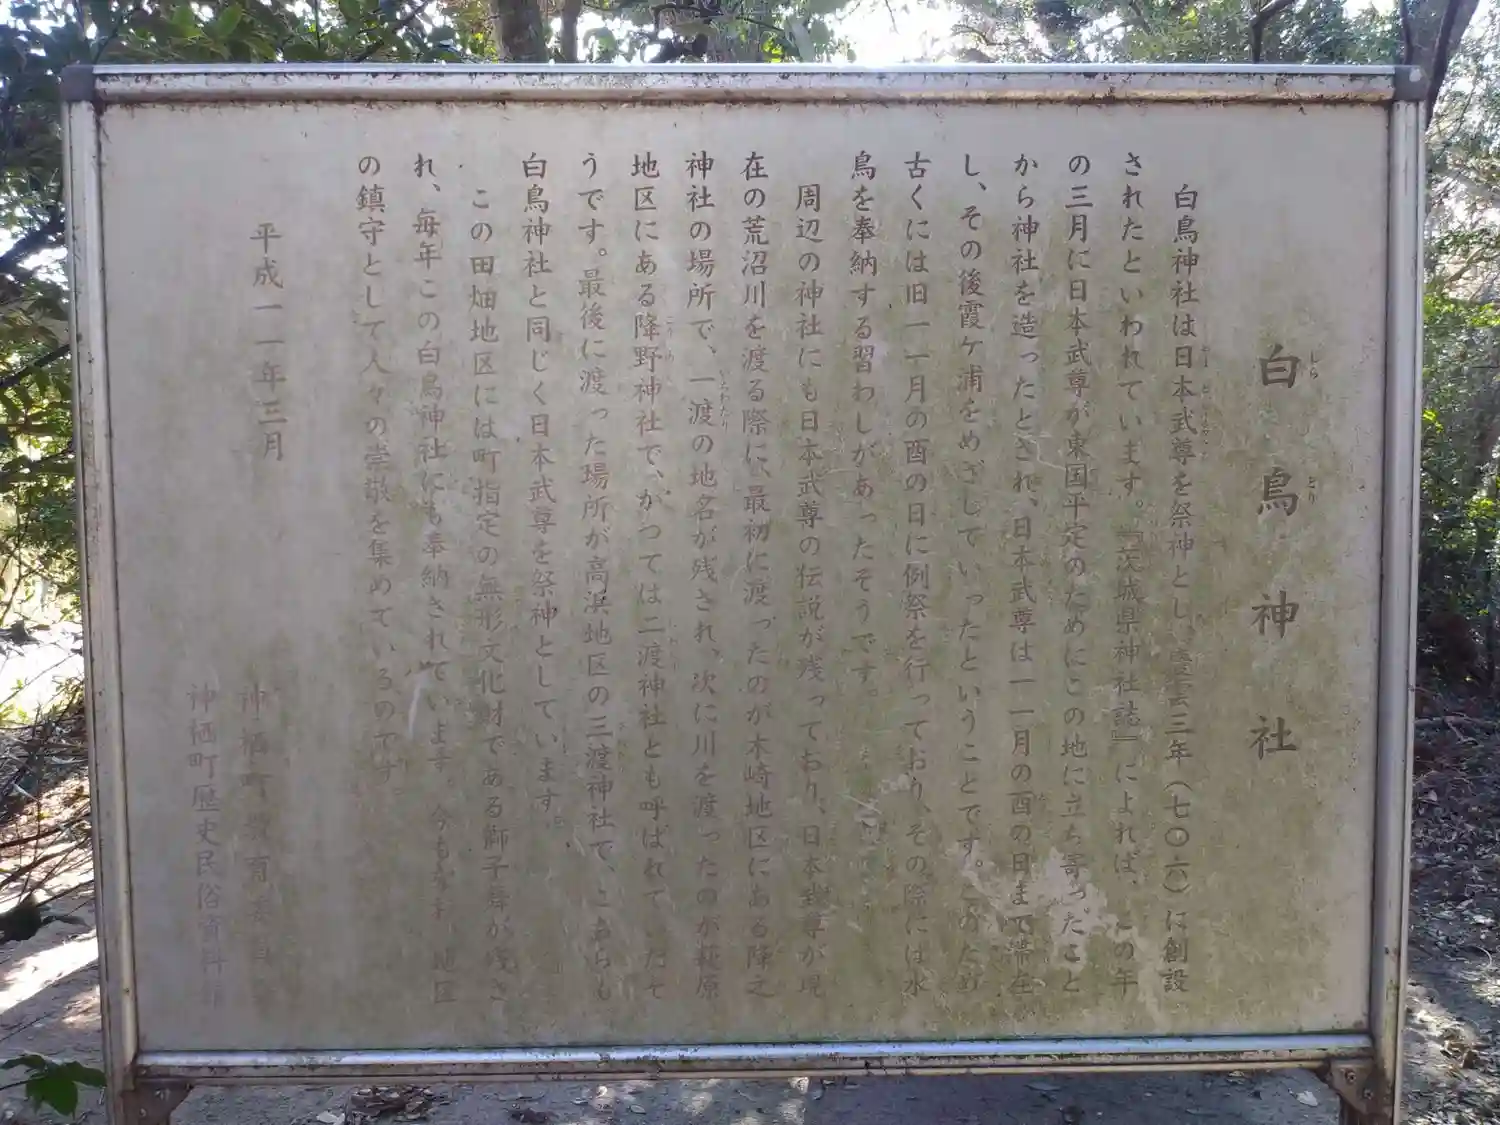 白鳥神社
しらとり
白鳥神社は日本武尊を祭神とし、慶雲三年(七〇六)に創設
されたといわれています。『茨城県神社誌』によれば、この年
の三月に日本武尊が東国平定のためにこの地に立ち寄ったこと
から神社を造ったとされ、日本武尊は一一月の酉の日まで滞在
し、その後霞ケ浦をめざしていったということです。このため
古くには旧一一月の酉の日に例祭を行っており、その際には水
鳥を奉納する習わしがあったそうです。
周辺の神社にも日本武尊の伝説が残っており、日本武尊が現
在の荒沼川を渡る際に、最初に渡ったのが木崎地区にある降之
神社の場所で、一渡の地名が残され、次に川を渡ったのが萩原
地区にある降野神社で、かつては二渡神社とも呼ばれて
うです。最後に渡った場所が高浜地区の三渡神社で、こちらも
白鳥神社と同じく日本武尊を祭神としています。
この田畑地区には町指定の無形文化財である獅子舞が残さ
れ、毎年この白鳥神社にも奉納されています。今もなお、地区
の鎮守として人々の崇敬を集めているのです。
平成一一年三月
神栖町教育委員会
神栖町歴史民俗資料館